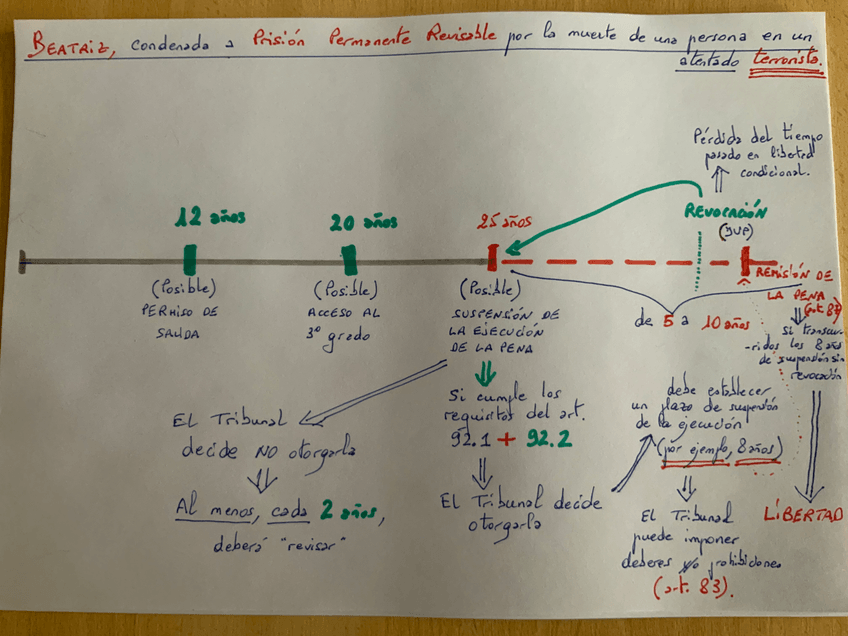 BEATRIZ, condenada a Prisión Permanente Revisable por la muerte de una persona en un
atentado terrorista.
Pérdida del tiempo
pasado en libertad
condicional.
REVOCACIÓN
(JVP)
12 años
20 años
25 años
(Posible)
PERMISO DE
SALIDA
(Posible)
ACCESO AL
3º grado
(Posible)
SUSPENSIÓN DE
LA EJECUCIÓN
DE LA PENA
de 5 a 10 años
REMISIÓN DE
LA PENA
(art. 87)
Si transcu-
-rridos los 8 años
de suspensión sin
revocación
LIBERTAD
Si cumple los
requisitos del art.
92.1 + 92.2
El Tribunal decide
otorgarla
debe establecer
un plazo de suspensión
de la ejecución
(por ejemplo, 8 años)
El Tribunal
puede imponer
deberes y/o prohibiciones
(art. 83).
El Tribunal
decide NO otorgarla
Al menos, cada 2 años,
deberá "revisar"